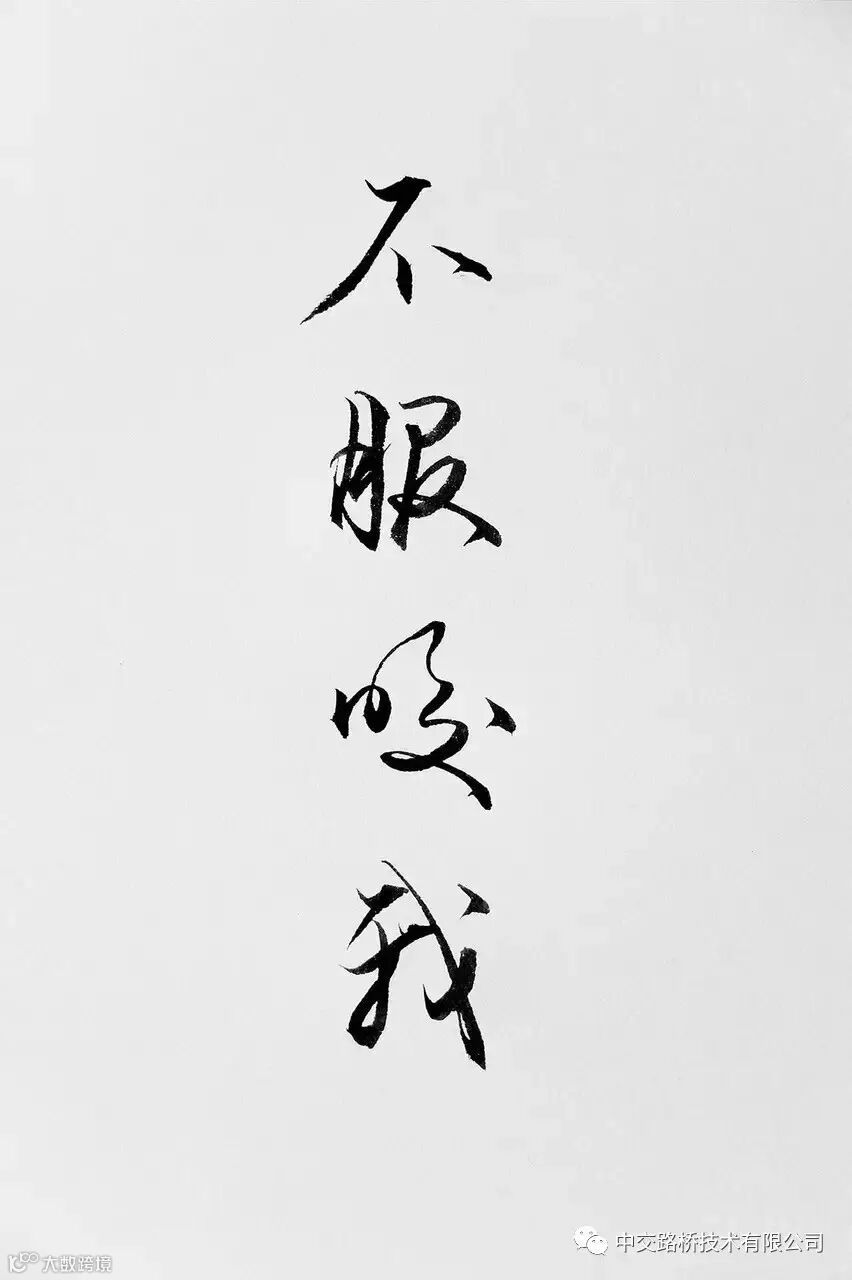 不服咬我
中交路桥技术有限公司
大数跨境